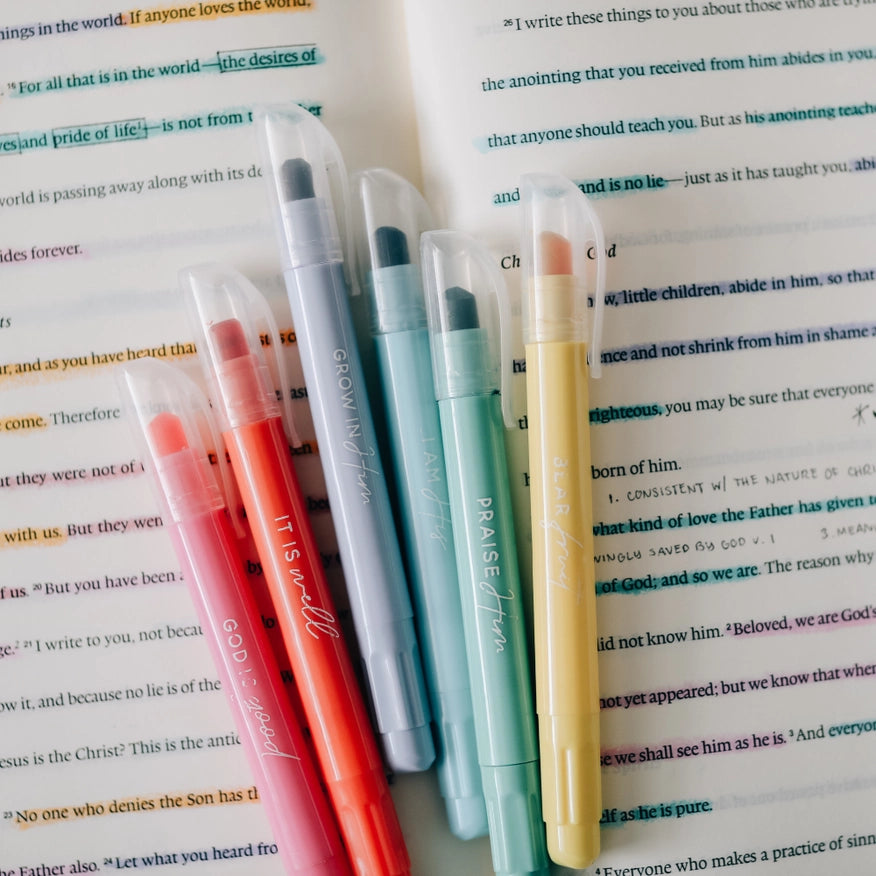 things in the world. If anyone loves the world,
15 For all that is in the world—the desires of
eyes and pride of life—is not from
world is passing away along with its
abides forever.
and as you have heard that
come. Therefore
but they were not of
with us. But they
of us. 20 But you have been
21 I write to you, not
it, and because no lie is of the
Jesus is the Christ? This is the
23 No one who denies the Son has
the Father also. 24 Let what you heard
26 I write these things to you about those who are
the anointing that you received from him abides in you,
that anyone should teach you. But as his anointing
and is no lie—just as it has taught you,
God
little children, abide in him, so that
and not shrink from him in shame
righteous, you may be sure that everyone
born of him.
1. CONSISTENT W/ THE NATURE OF
what kind of love the Father has given
SAVED BY GOD V. 1 3.
of God; and so we are. The reason why
did not know him. 2 Beloved, we are God's
not yet appeared; but we know that when
we shall see him as he is. 3 And
as he is pure.
4 Everyone who makes a practice of
GOD IS good
IT IS well
GROW IN Him
I AM His
PRAISE Him
BEAR fruit